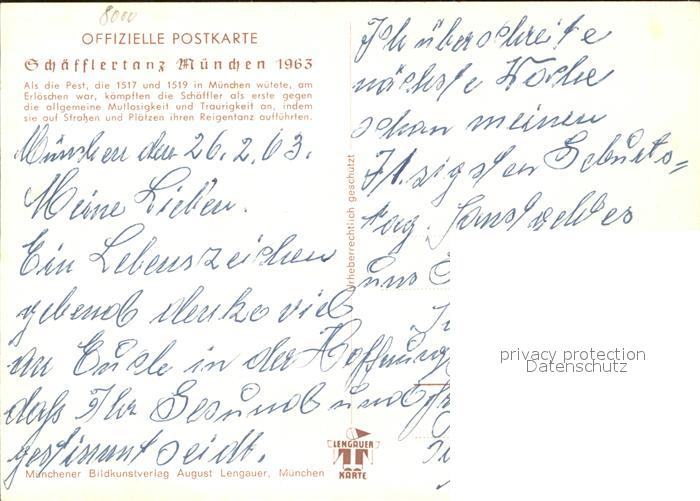 8000
OFFIZIELLE POSTKARTE
Schäfflertanz München 1963
Als die Pest, die 1517 und 1519 in München wütete, am
Erlöschen war, kämpften die Schäffler als erste gegen
die allgemeine Mutlosigkeit und Traurigkeit an, indem
sie auf Straßen und Plätzen ihren Reigentanz aufführten.
München den 26.2.63.
Meine Lieben.
Ein Lebenszeichen
gebend denke viel
an Euch in der Hoffnung
daß Ihr Gesund und
gestimmt seidt.
Münchener Bildkunstverlag August Lengauer, München
LENGAUER
KARTE
Urheberrechtlich geschützt
Ich überschreite
nächste Woche
schon meinen
71.zigsten Geburts=
tag. Sonst geht es
uns
privacy protection
Datenschutz